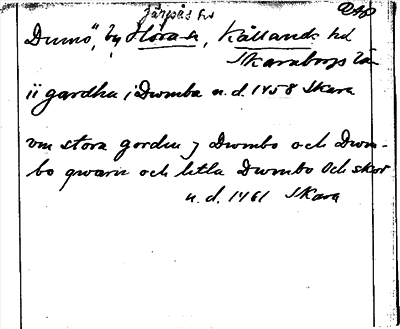 Järpås hs
Dumö, by, Flora sn, Kållands hd
Skaraborgs län
ii gardha i Dwmba u.d. 1458 Skara
vm stora gordin j Dwmbo och Dwm-
bo qwarn och litla Dwmbo och skog
u.d. 1461 Skara